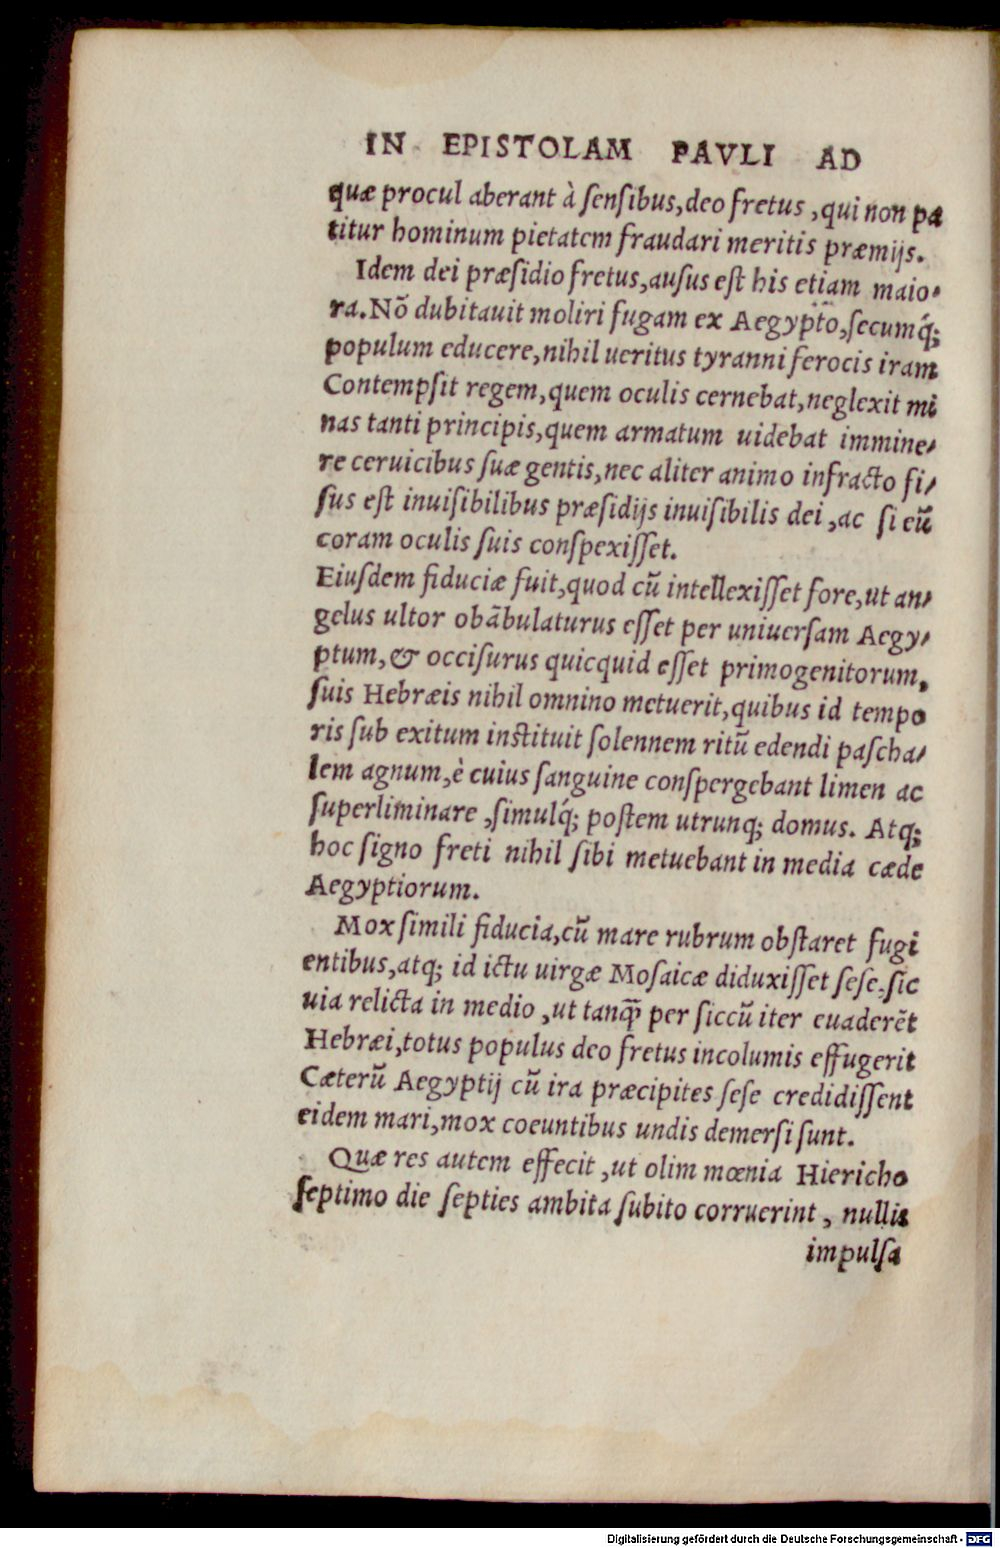 IN EPISTOLAM PAVLI AD
quæ procul aberant à ſenſibus, deo fretus , qui non pa
titur hominum pietatem fraudari meritis præmijs.
Idem dei præſidio fretus, auſus eſt his etiam maio⸗
ra. Nõ dubitauit moliri fugam ex Aegypto, ſecumq́;
populum educere, nihil ueritus tyranni ferocis iram
Contempſit regem, quem oculis cernebat, neglexit mi
nas tanti principis, quem armatum uidebat immine⸗
re ceruicibus ſuæ gentis, nec aliter animo infracto fi⸗
ſus eſt inuiſibilibus præſidijs inuiſibilis dei , ac ſi eũ
coram oculis ſuis conſpexiſſet.
Eiuſdem fiduciæ fuit, quod cũ intellexiſſet fore, ut an⸗
gelus ultor obãbulaturus eſſet per uniuerſam Aegy⸗
ptum, & occiſurus quicquid eſſet primogenitorum,
ſuis Hebræis nihil omnino metuerit, quibus id tempo
ris ſub exitum inſtituit ſolennem ritũ edendi paſcha⸗
lem agnum, è cuius ſanguine conſpergebant limen ac
ſuperliminare , ſimulq́; poſtem utrunq; domus. Atq;
hoc ſigno freti nihil ſibi metuebant in media cæde
Aegyptiorum.
Mox ſimili fiducia, cũ mare rubrum obſtaret fugi
entibus, atq; id ictu uirgæ Moſaicæ diduxiſſet ſeſe, ſic
uia relicta in medio , ut tanq̃ per ſiccũ iter euaderẽt
Hebræi, totus populus deo fretus incolumis effugerit
Cæterũ Aegyptij cũ ira præcipites ſeſe credidiſſent
eidem mari, mox coeuntibus undis demerſi ſunt.
Quæ res autem effecit , ut olim mœnia Hiericho
ſeptimo die ſepties ambita ſubito corruerint , nullis
impulſa
Digitalisierung gefördert durch die Deutsche Forschungsgemeinschaft - DFG